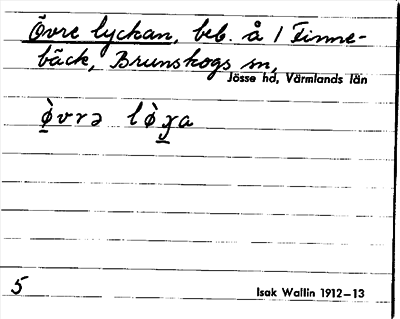 Övre lyckan, beb. å 1 Finne-
bäck, Brunskogs sn,
Jösse hd, Värmlands län
5
Isak Wallin 1912–13